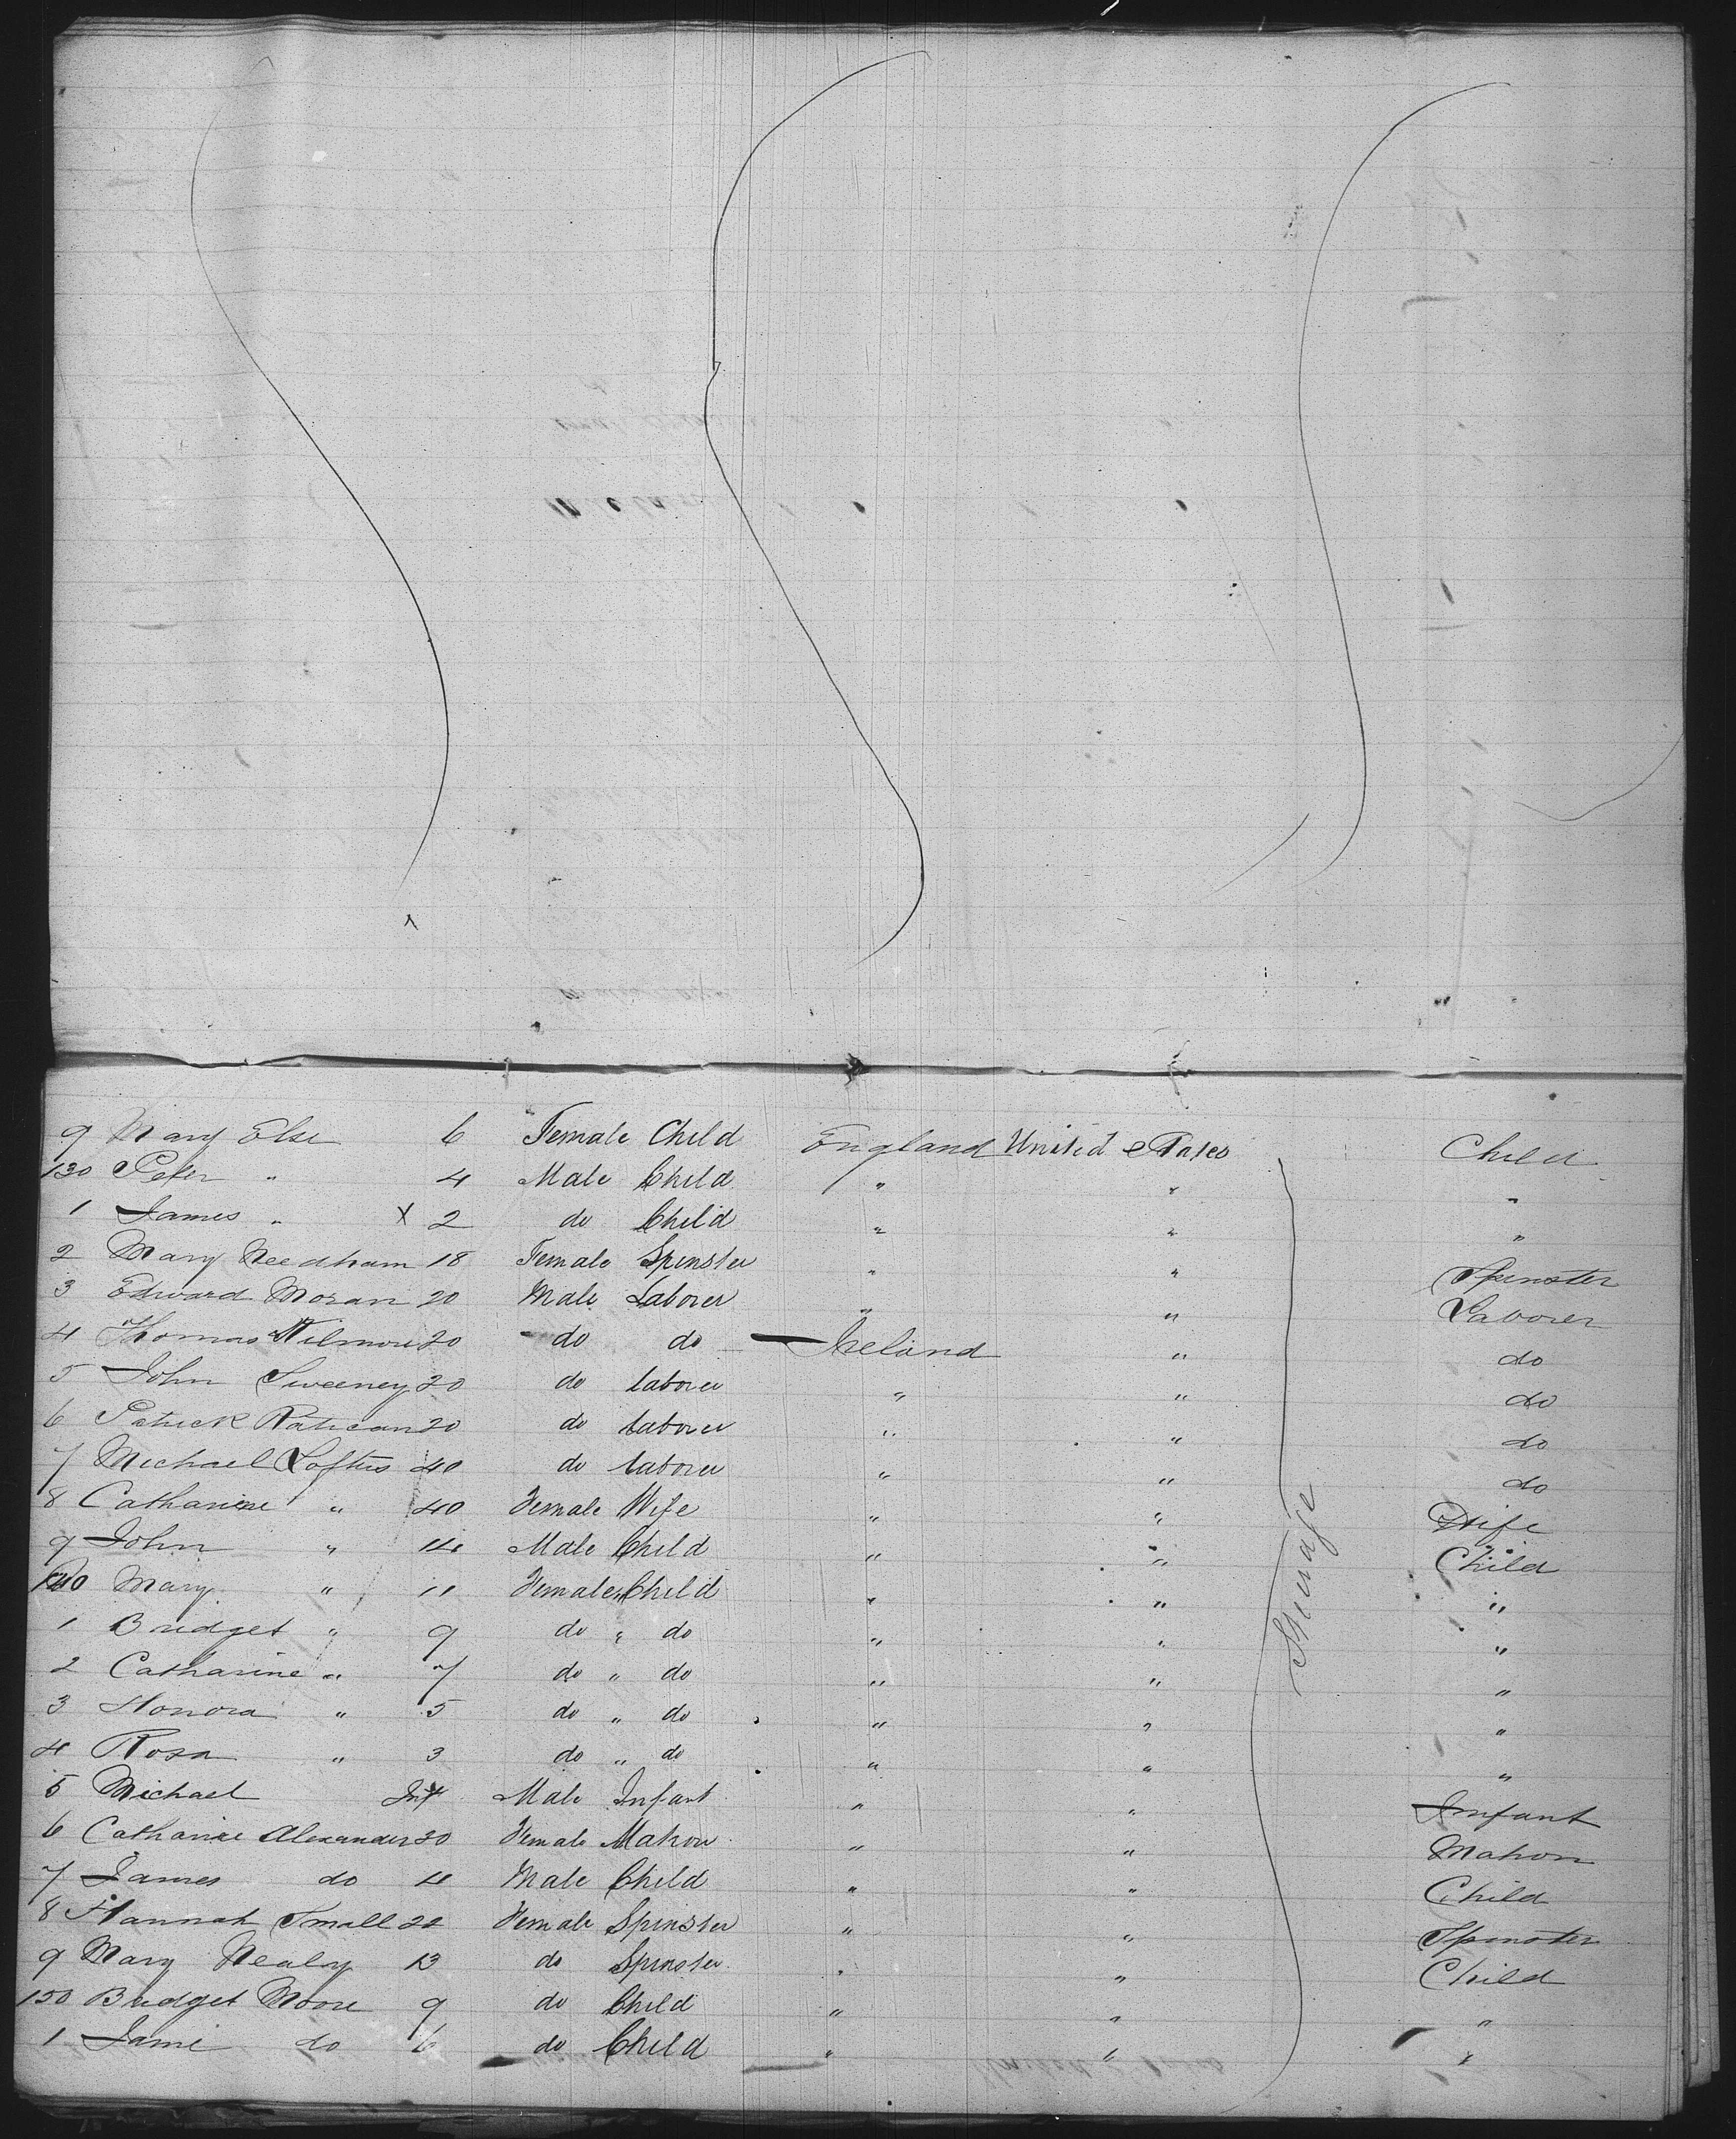 9 Mary Else 6 Female Child England United States Child
130 Peter " 4 Male Child " " "
1 James " X 2 do Child " " "
2 Mary Needham 18 Female Spinster " " Spinster
3 Edward Moran 20 Male Laborer " " Laborer
4 Thomas Kilmore 20 do do Ireland " do
5 John Sweeney 20 do laborer " " do
6 Patrick Ratican 20 do laborer " " do
7 Michael Loftus 40 do laborer " " do
8 Catharine " 40 Female Wife " " Wife
9 John " 14 Male Child " " Child
140 Mary " 11 Female Child " " "
1 Bridget " 9 do " do " " "
2 Catharine " 7 do " do " " "
3 Honora " 5 do " do " " "
4 Rosa " 3 do " do " " "
5 Michael Inf Male Infant " " Infant
6 Catharine Alexander 30 Female Matron " " Matron
7 James do 4 Male Child " " Child
8 Hannah Small 22 Female Spinster " " Spinster
9 Mary Nealy 13 do Spinster " " Child
150 Bridget Moore 9 do Child " " "
1 Jame do 6 do Child " " "
Steerage